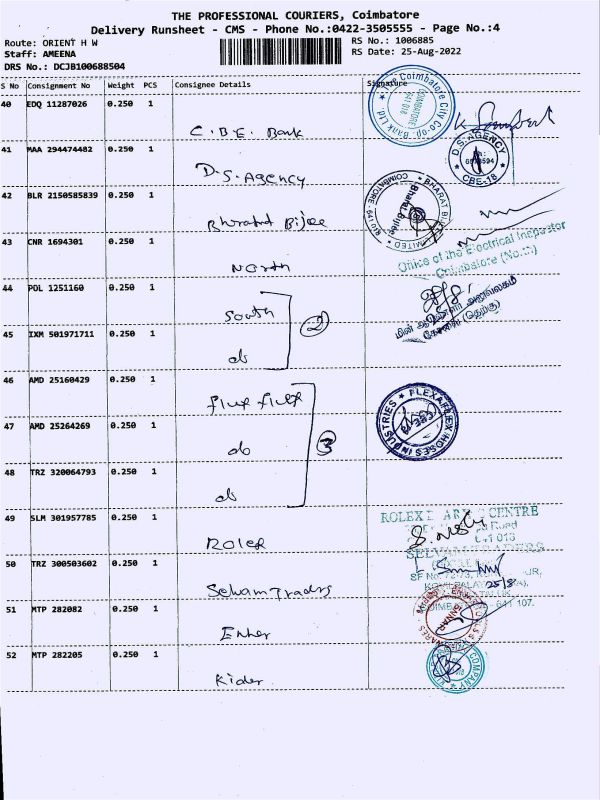 THE PROFESSIONAL COURIERS, Coimbatore
Delivery Runsheet - CMS - Phone No.:0422-3505555 - Page No.:4
Route: ORIENT H W
Staff: AMEENA
DRS No.: DCJB100688504
RS No.: 1006885
RS Date: 25-Aug-2022
S No Consignment No Weight PCS Consignee Details Signature
40 EDQ 11287026 0.250 1
C.B.E. Bank
Coimbatore City Co-op. Bank Ltd.
COIMBATORE 641 018
41 MAA 294474482 0.250 1
D.S. Agency
D.S. AGENCY
CBE-18
42 BLR 2150585839 0.250 1
Bharat Bijlee
BHARAT BIJLEE LIMITED
COIMBATORE - 641
Bharat Bijlee
43 CNR 1694301 0.250 1
North
Office of the Electrical Inspector
Coimbatore (North)
44 POL 1251160 0.250 1
South
2
மின் ஆய்வாளர் அலுவலகம்
கோவை (தெற்கு)
45 IXM 501971711 0.250 1
do
46 AMD 25160429 0.250 1
flex flex
3
FLEXAFLEX HOSES INDUSTRIES
47 AMD 25264269 0.250 1
do
48 TRZ 320064793 0.250 1
do
49 SLM 301957785 0.250 1
Rolex
ROLEX CENTRE
Road
641 018
50 TRZ 300503602 0.250 1
Selvam Traders
SELVAM TRADERS
SF No. 72/73,
25/8
641 107.
51 MTP 282082 0.250 1
52 MTP 282205 0.250 1
COMPANY